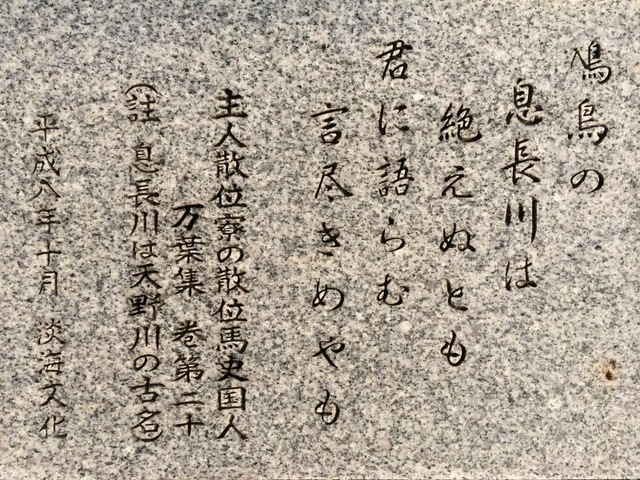 鳰鳥の
息長川は
絶えぬとも
君に語らむ
言尽きめやも
主人散位寮の散位馬史国人
万葉集 巻第二十
(註 息長川は天野川の古名)
平成八年十月 淡海文化